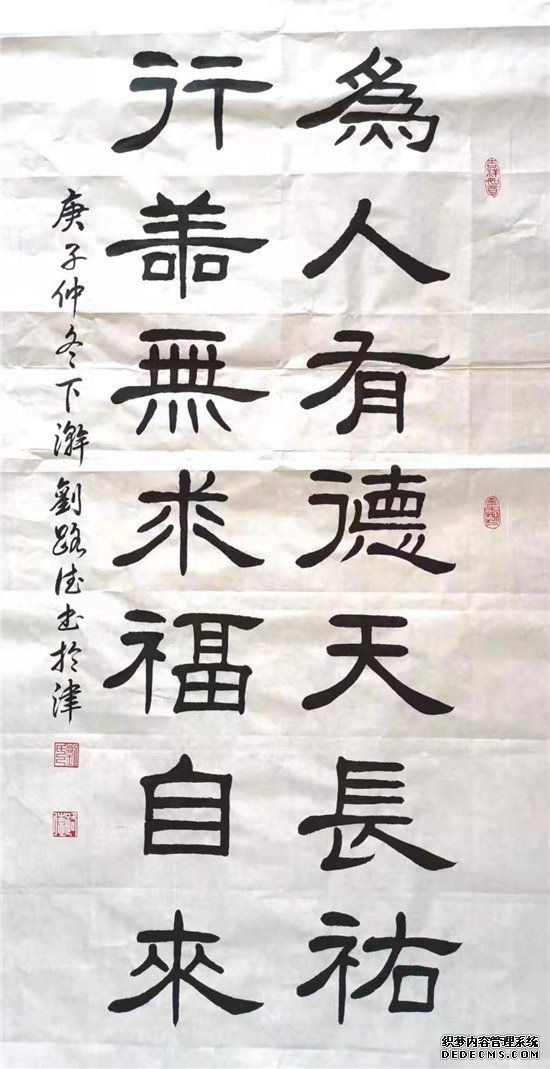 為人有德天長祐
行善無求福自來
庚子仲冬下澣劉路德书於津
吉祥如意
织梦内容管理系统
DEDECMS.COM